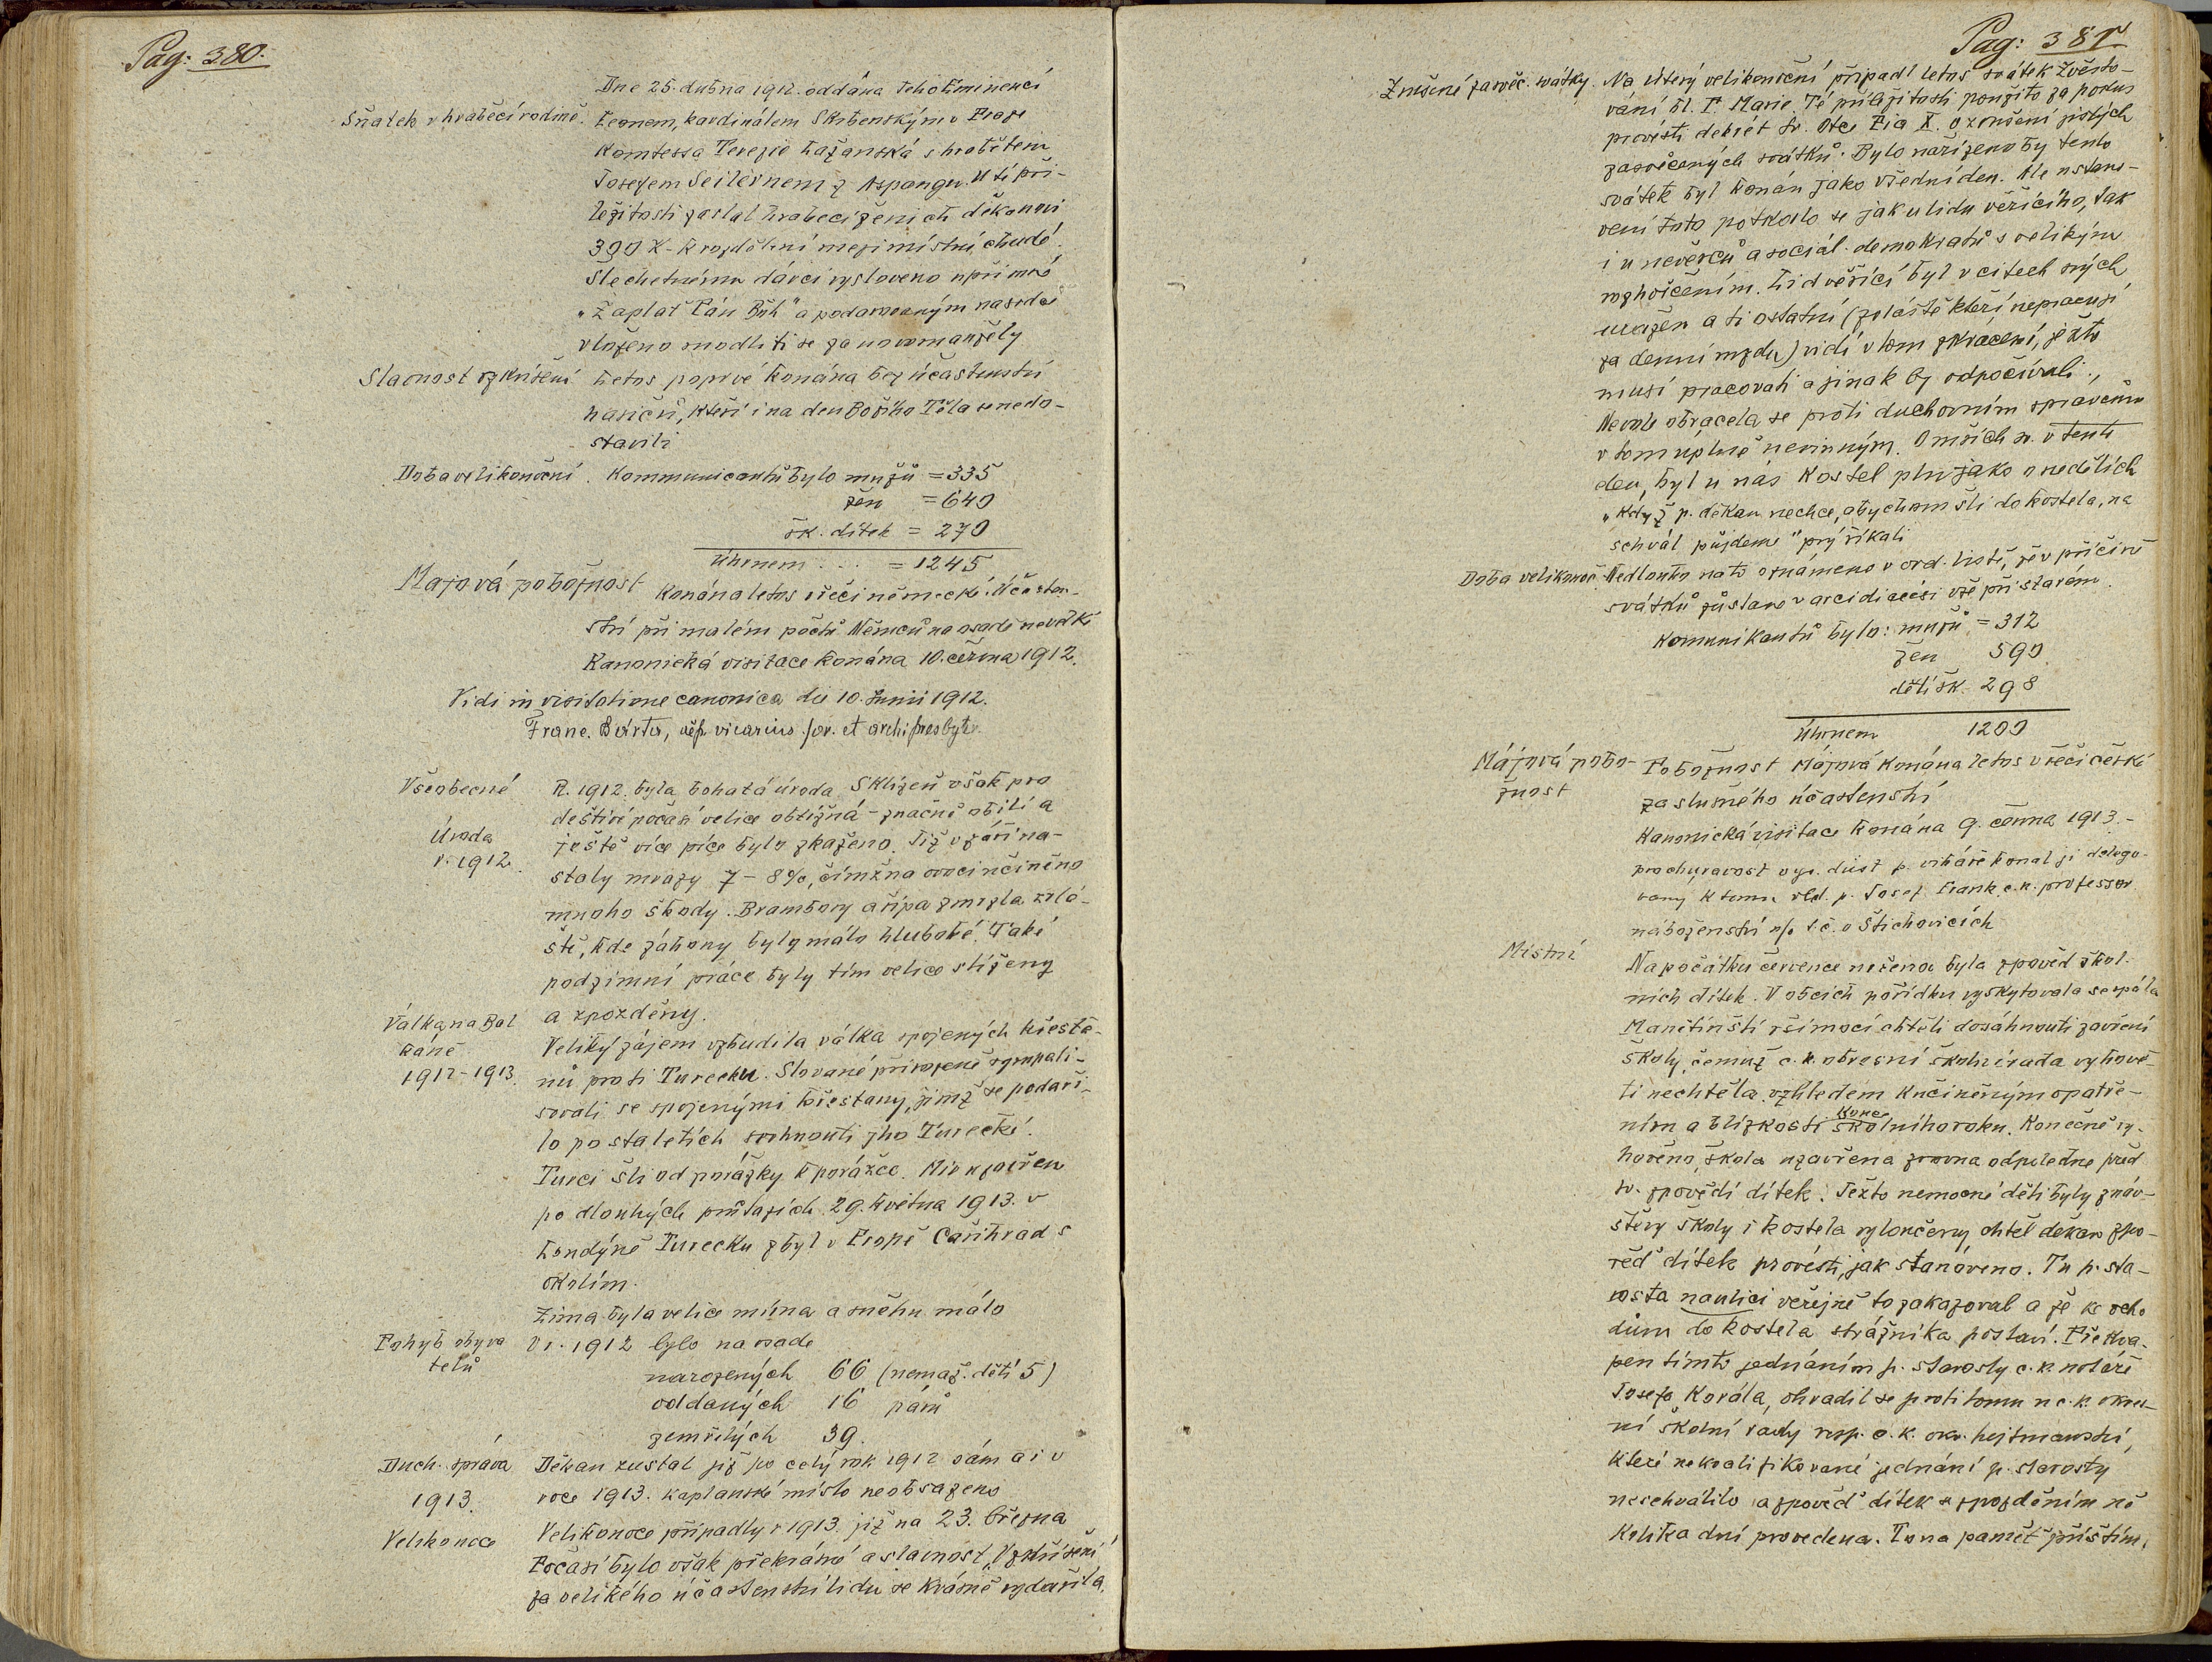 Pag: 380.
Dne 25. dubna 1912. oddána Jeho Eminencí
Sňatek v hraběcí rodině. Leonem, kardinálem Skrbenským v Praze
Komtessa Terezie Lažanská s hrabětem
Josefem Seilernem z Aspangu. U té pří-
ležitosti zaslal hraběcí ženich děkanovi
300 K - k rozdělení mezi místní chudé.
Šlechetnému dárci vysloveno upřímné
„Zaplať Pán Bůh“ a podarovaným na srdce
vloženo modliti se za novomanžely
Slavnost vzkříšení Letos poprvé konána bez účastenství
hasičů, kteří i na den Božího Těla se nedo-
stavili
Doba velikonoční. Kommunicantů bylo mužů = 335
žen = 640
šk. dítek = 270
Úhrnem . . . = 1245
Majová pobožnost konána letos v řeči německé. Účasten-
ství při malém počtu Němců na osadě nevelké
Kanonická visitace konána 10. června 1912.
Vidi in visitatione canonica die 10. Junii 1912.
Franc. Bárta, vicarius for. et archipresbyter.
Všeobecné R. 1912. byla bohatá úroda. Sklizeň však pro
deštivé počasí velice obtížná - značně obilí a
Úroda ještě více píce bylo zkaženo. Již v září na-
r. 1912. staly mrazy 7 - 8%, čímž na ovoci učiněno
mnoho škody. Brambory a řípa zmrzla zvlá-
ště, kde záhony byly málo hluboké. Také
podzimní práce byly tím velice stíženy
a zpozděny.
Válka na Bal
káně Veliký zájem vzbudila válka spojených křesťa-
1912-1913. nů proti Turecku. Slované přirozeně sympati-
sovali se spojenými křesťany, jimž se podaři-
lo po staletích svrhnouti jho Turecké.
Turci šli od porážky k porážce. Mír uzavřen
po dlouhých průtazích 29. května 1913. v
Londýně Turecku zbyl v Evropě Cařihrad s
okolím.
Zima byla velice mírna a sněhu málo
Pohyb obyva V r. 1912 bylo na osade
telů narozených 66 (nemaž. dětí 5)
oddaných 16 párů
zemřelých 39.
Duch. správa Děkan zustal již po celý rok 1912 sám a i v
1913. roce 1913. kaplanské místo neobsazeno
Velikonoce Velikonoce připadly r 1913. již na 23. března
Počasí bylo však překrásné a slavnost „Vzkříšení“
za velikého účastenství lidu se krásně vydařila.
Pag: 381
Zrušené zasvěc. svátky. Na Úterý velikonoční připadl letos svátek Zvěsto-
vání bl. P. Marie. Té příležitosti použito za pokus
provésti dekrét sv. Otce Pia X. o zrušení jistých
zasvěcených svátků. Bylo nařízeno by tento
svátek byl konán jako všední den. Ale ustano-
vení toto potkalo se jak u lidu věřícího, tak
i u nevěrců a sociál. demokratů s velikým
rozhořčením. Lid věřící byl v citech svých
uražen a ti ostatní (zvláště kteří nepracují
za denní mzdu) vidí v tom zkrácení, ježto
musí pracovati a jinak by odpočívali.,
Nevole obracela se proti duchovním správcům
v tom úplně nevinným. O mších sv. v tento
den, byl u nás kostel pln jako o nedělích
„Když p. děkan nechce, abychom šli do kostela, na
schvál půjdeme“ prý říkali
Doba velikonoč. Nedlouho nato oznámeno v ord. listě, že v příčině
svátků zůstane v arcidiécési vše při starém.
Komunikantů bylo: mužů = 312
žen 590
dětí šk. 298
Úhrnem 1200
Májová pobo- Pobožnost Májová konána letos v řeči české
žnost za slušného účastenství
Kanonická visitace konána 9. června 1913. -
prochuravost vys. důst p. vikáře konal ji delego-
vaný k tomu vld. p. Josef Frank c. k. professor
náboženství t. č. v Štichovicích
Místní Na počátku července určena byla zpověď škol-
ních dítek. V obcích pořídku vyskytovala se spála
Manětínští vší mocí chtěli dosáhnouti zavření
školy, čemuž c. k. okresní školní rada vyhově-
ti nechtěla vzhledem k učiněným opatře-
konce
ním a blízkosti školního roku. Konečně vy-
hověno, škola uzavřena zrovna odpoledne před
sv. zpovědí dítek. Ježto nemocné děti byly z náv-
štěvy školy i kostela vyloučeny chtěl děkan zpo-
věď dítek provésti, jak stanoveno. Tu p. sta-
rosta na ulici veřejně to zakazoval a že ke vcho
dům do kostela strážníka postaví. Překva-
pen tímto jednáním p. starosty c. k. notáře
Josefa Kovála, ohradil se proti tomu u c. k. okres-
ní školní rady resp. c. k. okr. hejtmanství,
které nekvalifikované jednání p. starosty
neschválilo a zpověď dítek s zpožděním ně
kolika dní provedena. To na paměť příštím.